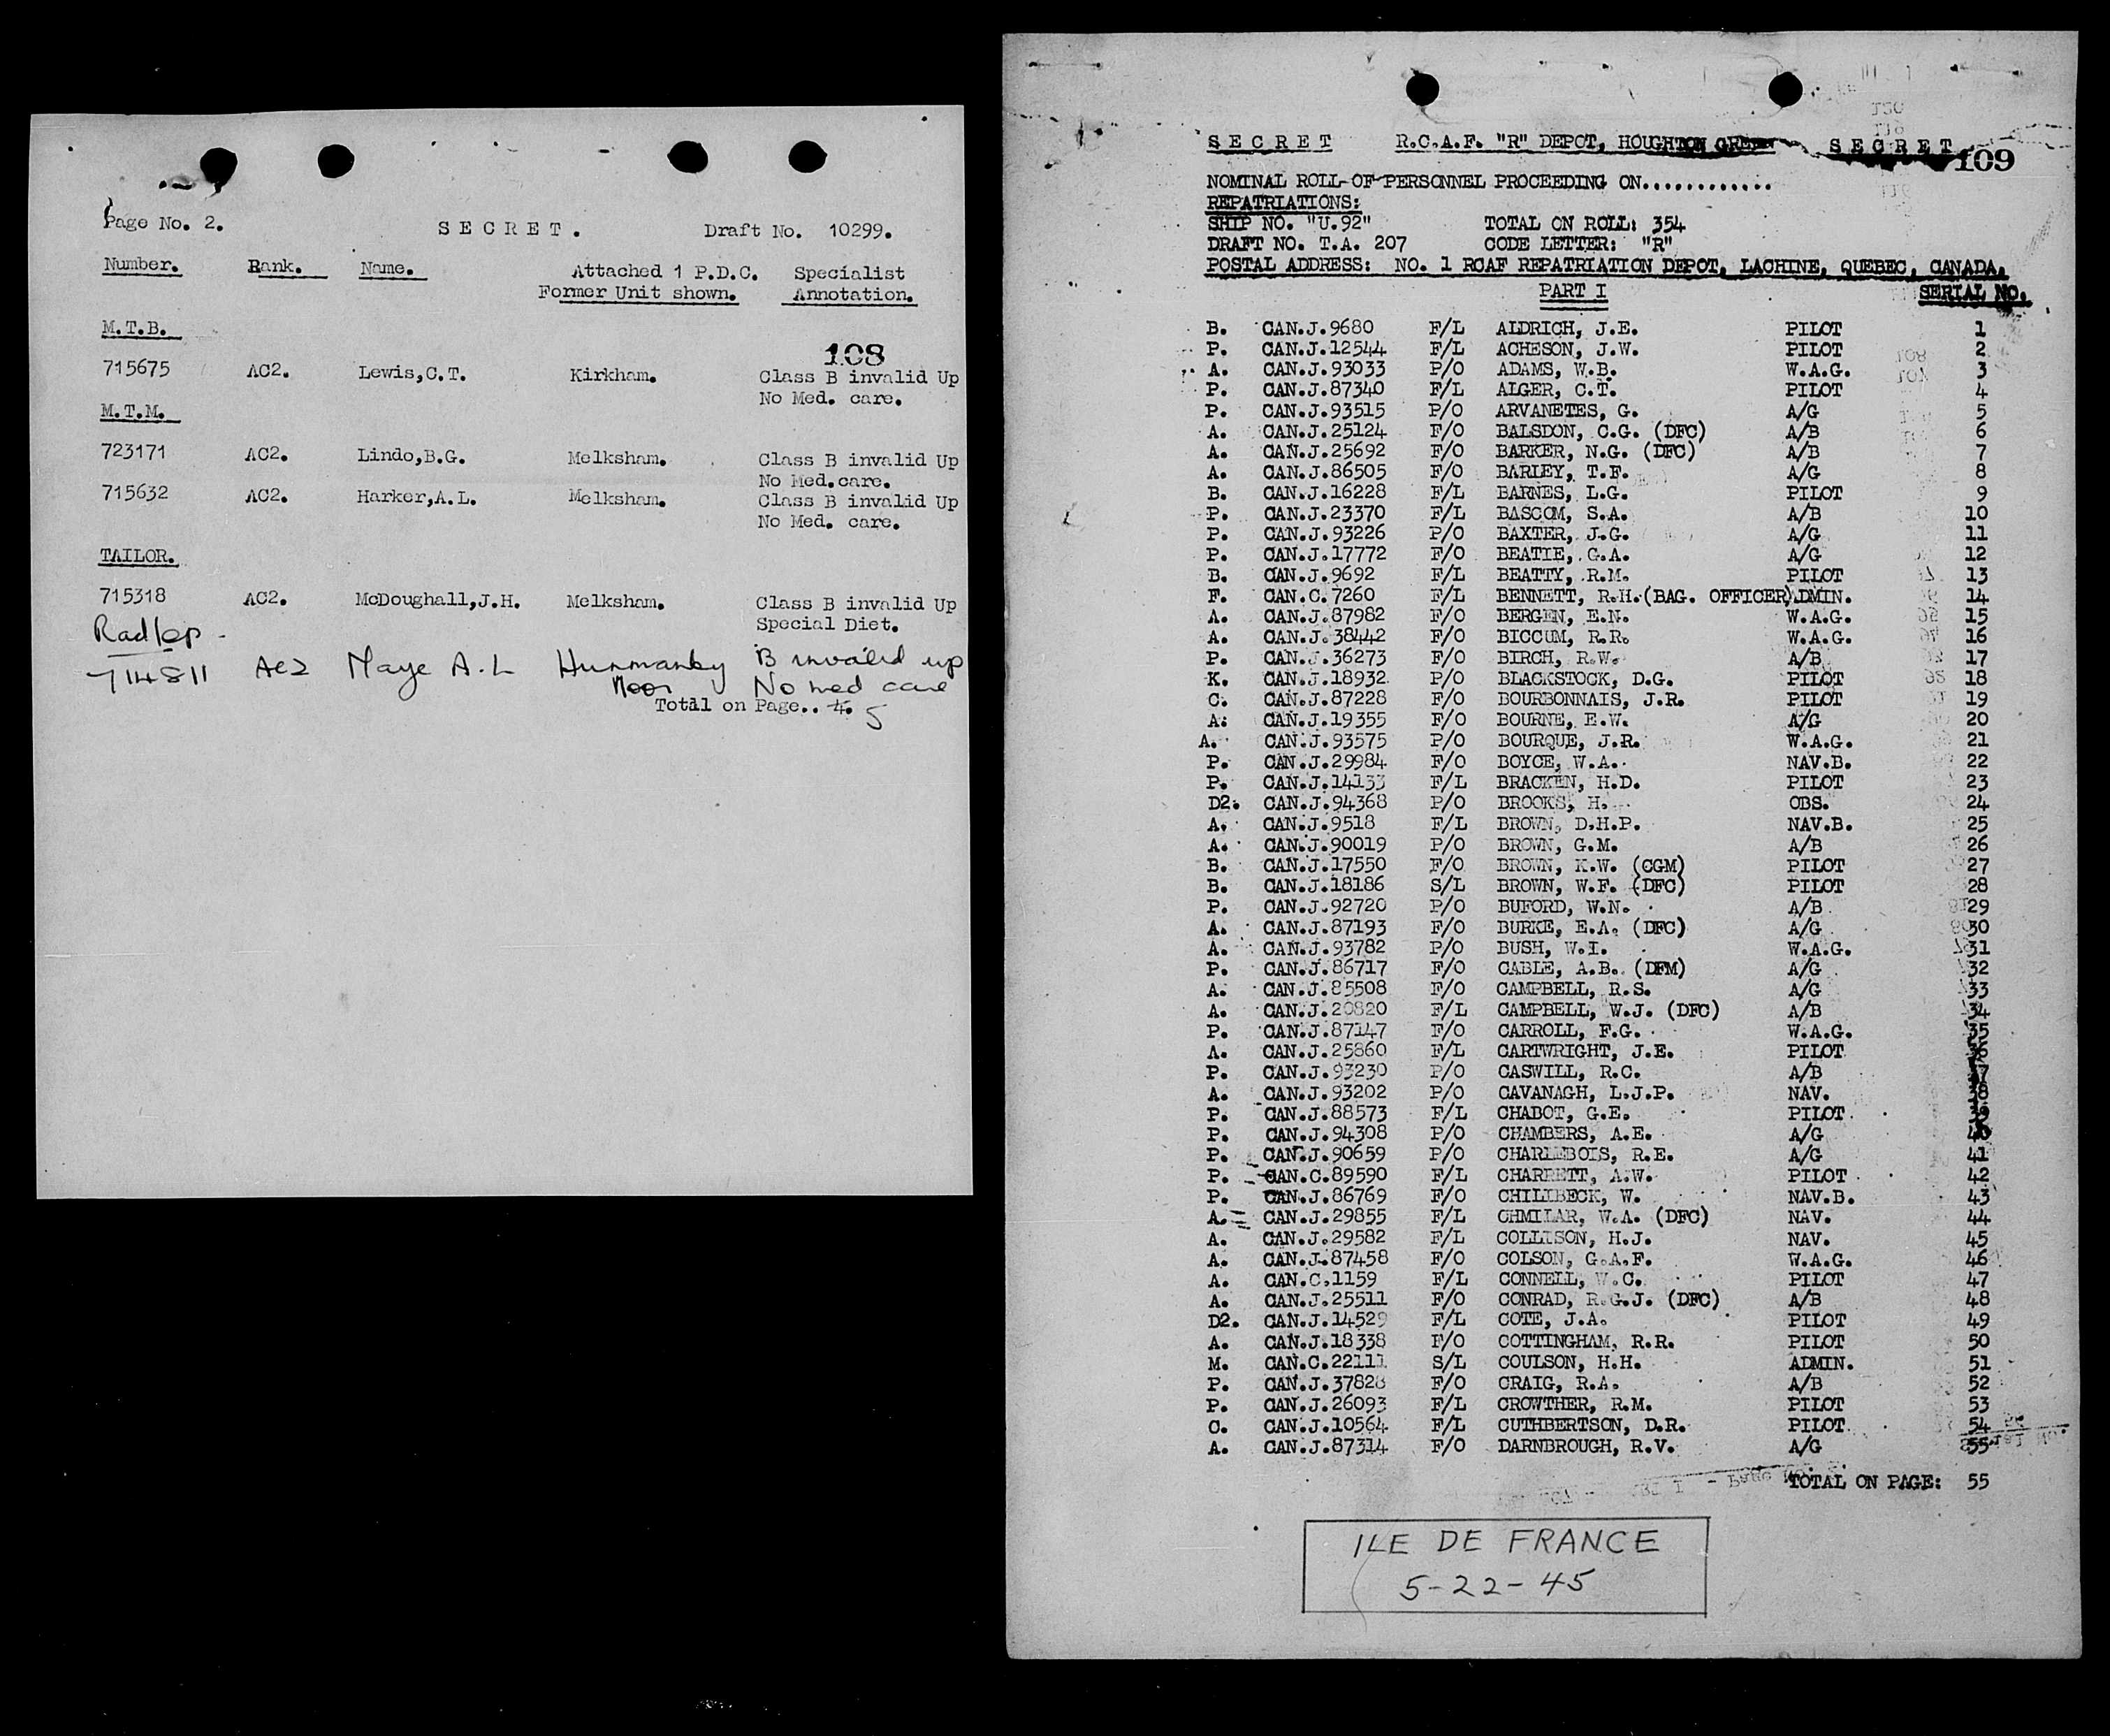 Page No. 2. SECRET. Draft No. 10299.
Number. Rank. Name. Attached 1 P.D.C. Specialist
Former Unit shown. Annotation.
M.T.B.
108
715675 AC2. Lewis,C.T. Kirkham. Class B invalid Up
No Med. care.
M.T.M.
723171 AC2. Lindo,B.G. Melksham. Class B invalid Up
No Med.care.
715632 AC2. Harker,A.L. Melksham. Class B invalid Up
No Med. care.
TAILOR.
715318 AC2. McDoughall,J.H. Melksham. Class B invalid Up
Special Diet.
Rad/op -
714811 AC2 Maye A.L Hunmanby B invalid up
Moor No med care
Total on Page.. 4. 5
SECRET R.C.A.F. "R" DEPOT, HOUGHTON SECRET
109
NOMINAL ROLL OF PERSONNEL PROCEEDING ON............
REPATRIATIONS:
SHIP NO. "U.92" TOTAL ON ROLL: 354
DRAFT NO. T.A. 207 CODE LETTER: "R"
POSTAL ADDRESS: NO. 1 RCAF REPATRIATION DEPOT, LACHINE, QUEBEC, CANADA.
PART I SERIAL NO.
B. CAN.J.9680 F/L ALDRICH, J.E. PILOT 1
P. CAN.J.12544 F/L ACHESON, J.W. PILOT 2
A. CAN.J.93033 P/O ADAMS, W.B. W.A.G. 3
P. CAN.J.87340 F/L ALGER, C.T. PILOT 4
P. CAN.J.93515 P/O ARVANETES, G. A/G 5
A. CAN.J.25124 F/O BALSDON, C.G. (DFC) A/B 6
A. CAN.J.25692 F/O BARKER, N.G. (DFC) A/B 7
A. CAN.J.86505 F/O BARLEY, T.F. A/G 8
B. CAN.J.16228 F/L BARNES, L.G. PILOT 9
P. CAN.J.23370 F/L BASCOM, S.A. A/B 10
P. CAN.J.93226 P/O BAXTER, J.G. A/G 11
P. CAN.J.17772 F/O BEATIE, G.A. A/G 12
B. CAN.J.9692 F/L BEATTY, R.M. PILOT 13
F. CAN.C.7260 F/L BENNETT, R.H.(BAG. OFFICER)ADMIN. 14
A. CAN.J.87982 F/O BERGEN, E.N. W.A.G. 15
A. CAN.J.38442 F/O BICCUM, R.R. W.A.G. 16
P. CAN.J.36273 F/O BIRCH, R.W. A/B 17
K. CAN.J.18932 P/O BLACKSTOCK, D.G. PILOT 18
C. CAN.J.87228 F/O BOURBONNAIS, J.R. PILOT 19
A. CAN.J.19355 F/O BOURNE, E.W. A/G 20
A. CAN.J.93575 P/O BOURQUE, J.R. W.A.G. 21
P. CAN.J.29984 F/O BOYCE, W.A. NAV.B. 22
P. CAN.J.14133 F/L BRACKEN, H.D. PILOT 23
D2. CAN.J.94368 P/O BROOKS, H. OBS. 24
A. CAN.J.9518 F/L BROWN, D.H.P. NAV.B. 25
A. CAN.J.90019 P/O BROWN, G.M. A/B 26
B. CAN.J.17550 F/O BROWN, K.W. (CGM) PILOT 27
B. CAN.J.18186 S/L BROWN, W.F. (DFC) PILOT 28
P. CAN.J.92720 P/O BUFORD, W.N. A/B 29
A. CAN.J.87193 F/O BURKE, E.A. (DFC) A/G 30
A. CAN.J.93782 P/O BUSH, W.I. W.A.G. 31
P. CAN.J.86717 F/O CABLE, A.B. (DFM) A/G 32
A. CAN.J.85508 F/O CAMPBELL, R.S. A/G 33
A. CAN.J.20820 F/L CAMPBELL, W.J. (DFC) A/B 34
P. CAN.J.87147 F/O CARROLL, F.G. W.A.G. 35
A. CAN.J.25860 F/L CARTWRIGHT, J.E. PILOT 36
P. CAN.J.93230 P/O CASWILL, R.C. A/B 37
A. CAN.J.93202 P/O CAVANAGH, L.J.P. NAV. 38
P. CAN.J.88573 F/L CHABOT, G.E. PILOT 39
P. CAN.J.94308 P/O CHAMBERS, A.E. A/G 40
P. CAN.J.90659 P/O CHARLEBOIS, R.E. A/G 41
P. CAN.C.89590 F/L CHARRETT, A.W. PILOT 42
P. CAN.J.86769 F/O CHILIBECK, W. NAV.B. 43
A. CAN.J.29855 F/L CHMILAR, W.A. (DFC) NAV. 44
A. CAN.J.29582 F/L COLLISON, H.J. NAV. 45
A. CAN.J.87458 F/O COLSON, G.A.F. W.A.G. 46
A. CAN.C.1159 F/L CONNELL, W.C. PILOT 47
A. CAN.J.25511 F/O CONRAD, R.G.J. (DFC) A/B 48
D2. CAN.J.14529 F/L COTE, J.A. PILOT 49
A. CAN.J.18338 F/O COTTINGHAM, R.R. PILOT 50
M. CAN.C.22111 S/L COULSON, H.H. ADMIN. 51
P. CAN.J.37828 F/O CRAIG, R.A. A/B 52
P. CAN.J.26093 F/L CROWTHER, R.M. PILOT 53
C. CAN.J.10564 F/L CUTHBERTSON, D.R. PILOT 54
A. CAN.J.87314 F/O DARNBROUGH, R.V. A/G 55
TOTAL ON PAGE: 55
ILE DE FRANCE
5-22-45